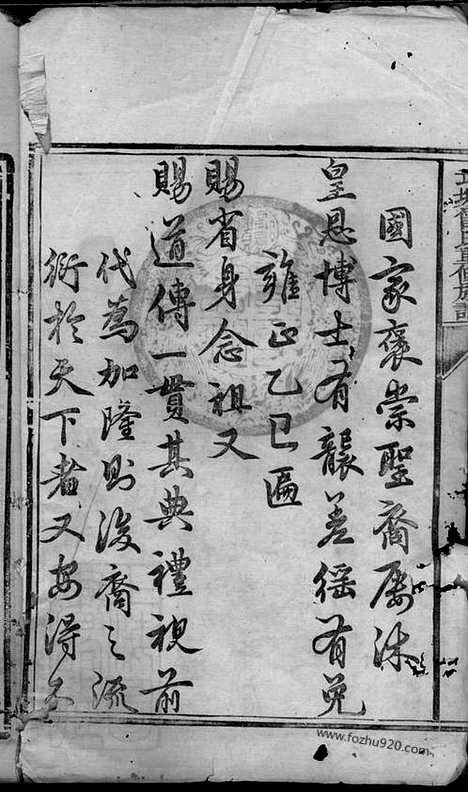 國家褒崇聖裔屢沐
皇恩博士有襲差徭有免
雍正乙巳匾
賜省身念祖又
賜道傳一貫其典禮視前
代為加隆則後裔之流
衍於天下者又安得不
www.fozhu920.com